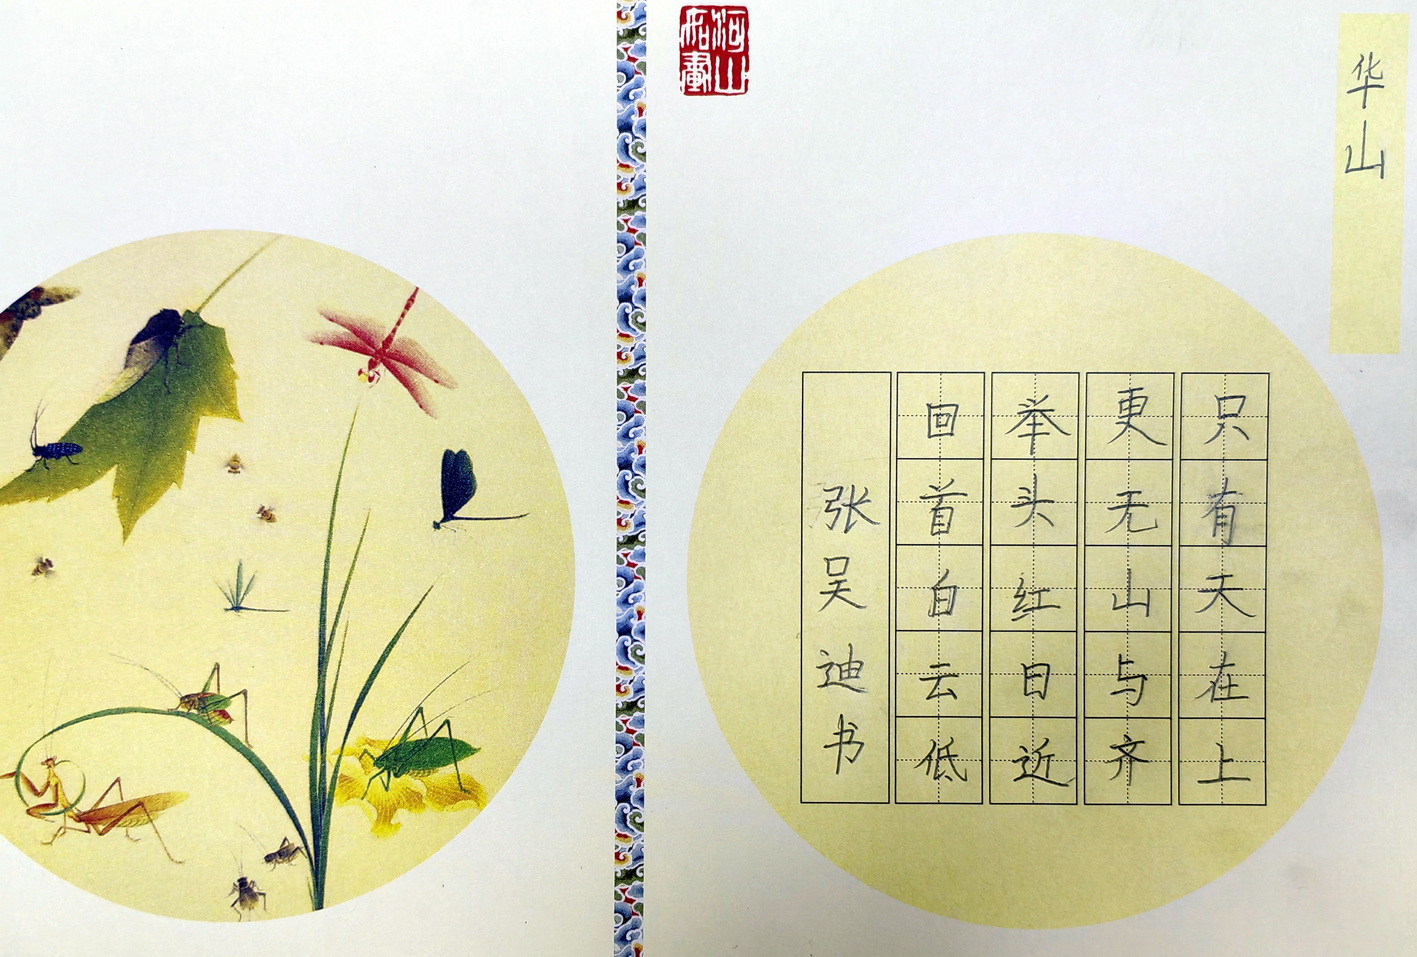 华山
只有天在上
更无山与齐
举头红日近
回首白云低
张吴迪书